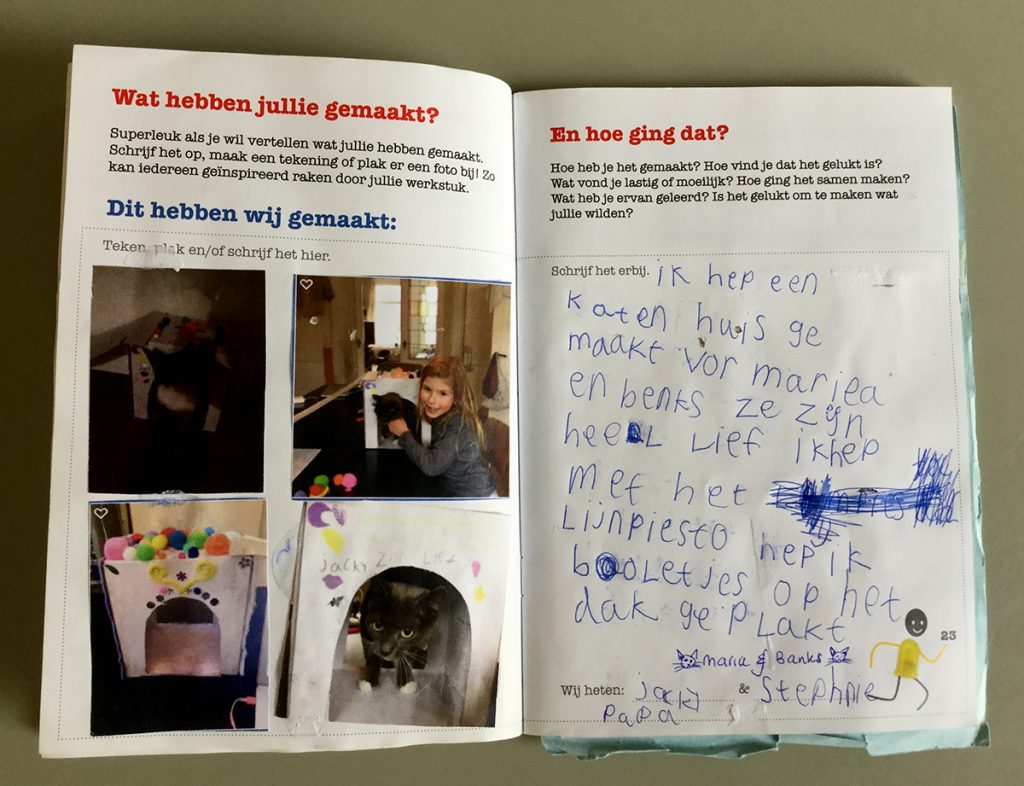 Wat hebben jullie gemaakt?
Superleuk als je wil vertellen wat jullie hebben gemaakt.
Schrijf het op, maak een tekening of plak er een foto bij! Zo
kan iedereen geïnspireerd raken door jullie werkstuk.
Dit hebben wij gemaakt:
Teken, plak en/of schrijf het hier.
jacky zijn Lief
En hoe ging dat?
Hoe heb je het gemaakt? Hoe vind je dat het gelukt is?
Wat vond je lastig of moeilijk? Hoe ging het samen maken?
Wat heb je ervan geleerd? Is het gelukt om te maken wat
jullie wilden?
Schrijf het erbij. ik hep een
katen huis ge
maakt vor mariea
en benks ze zijn
heeL Lief ik hep
met het
Lijnpiesto hep ik
booletjes op het
dak ge pLakt
maria & Banks
23
Wij heten: jacky & Stephnie
papa